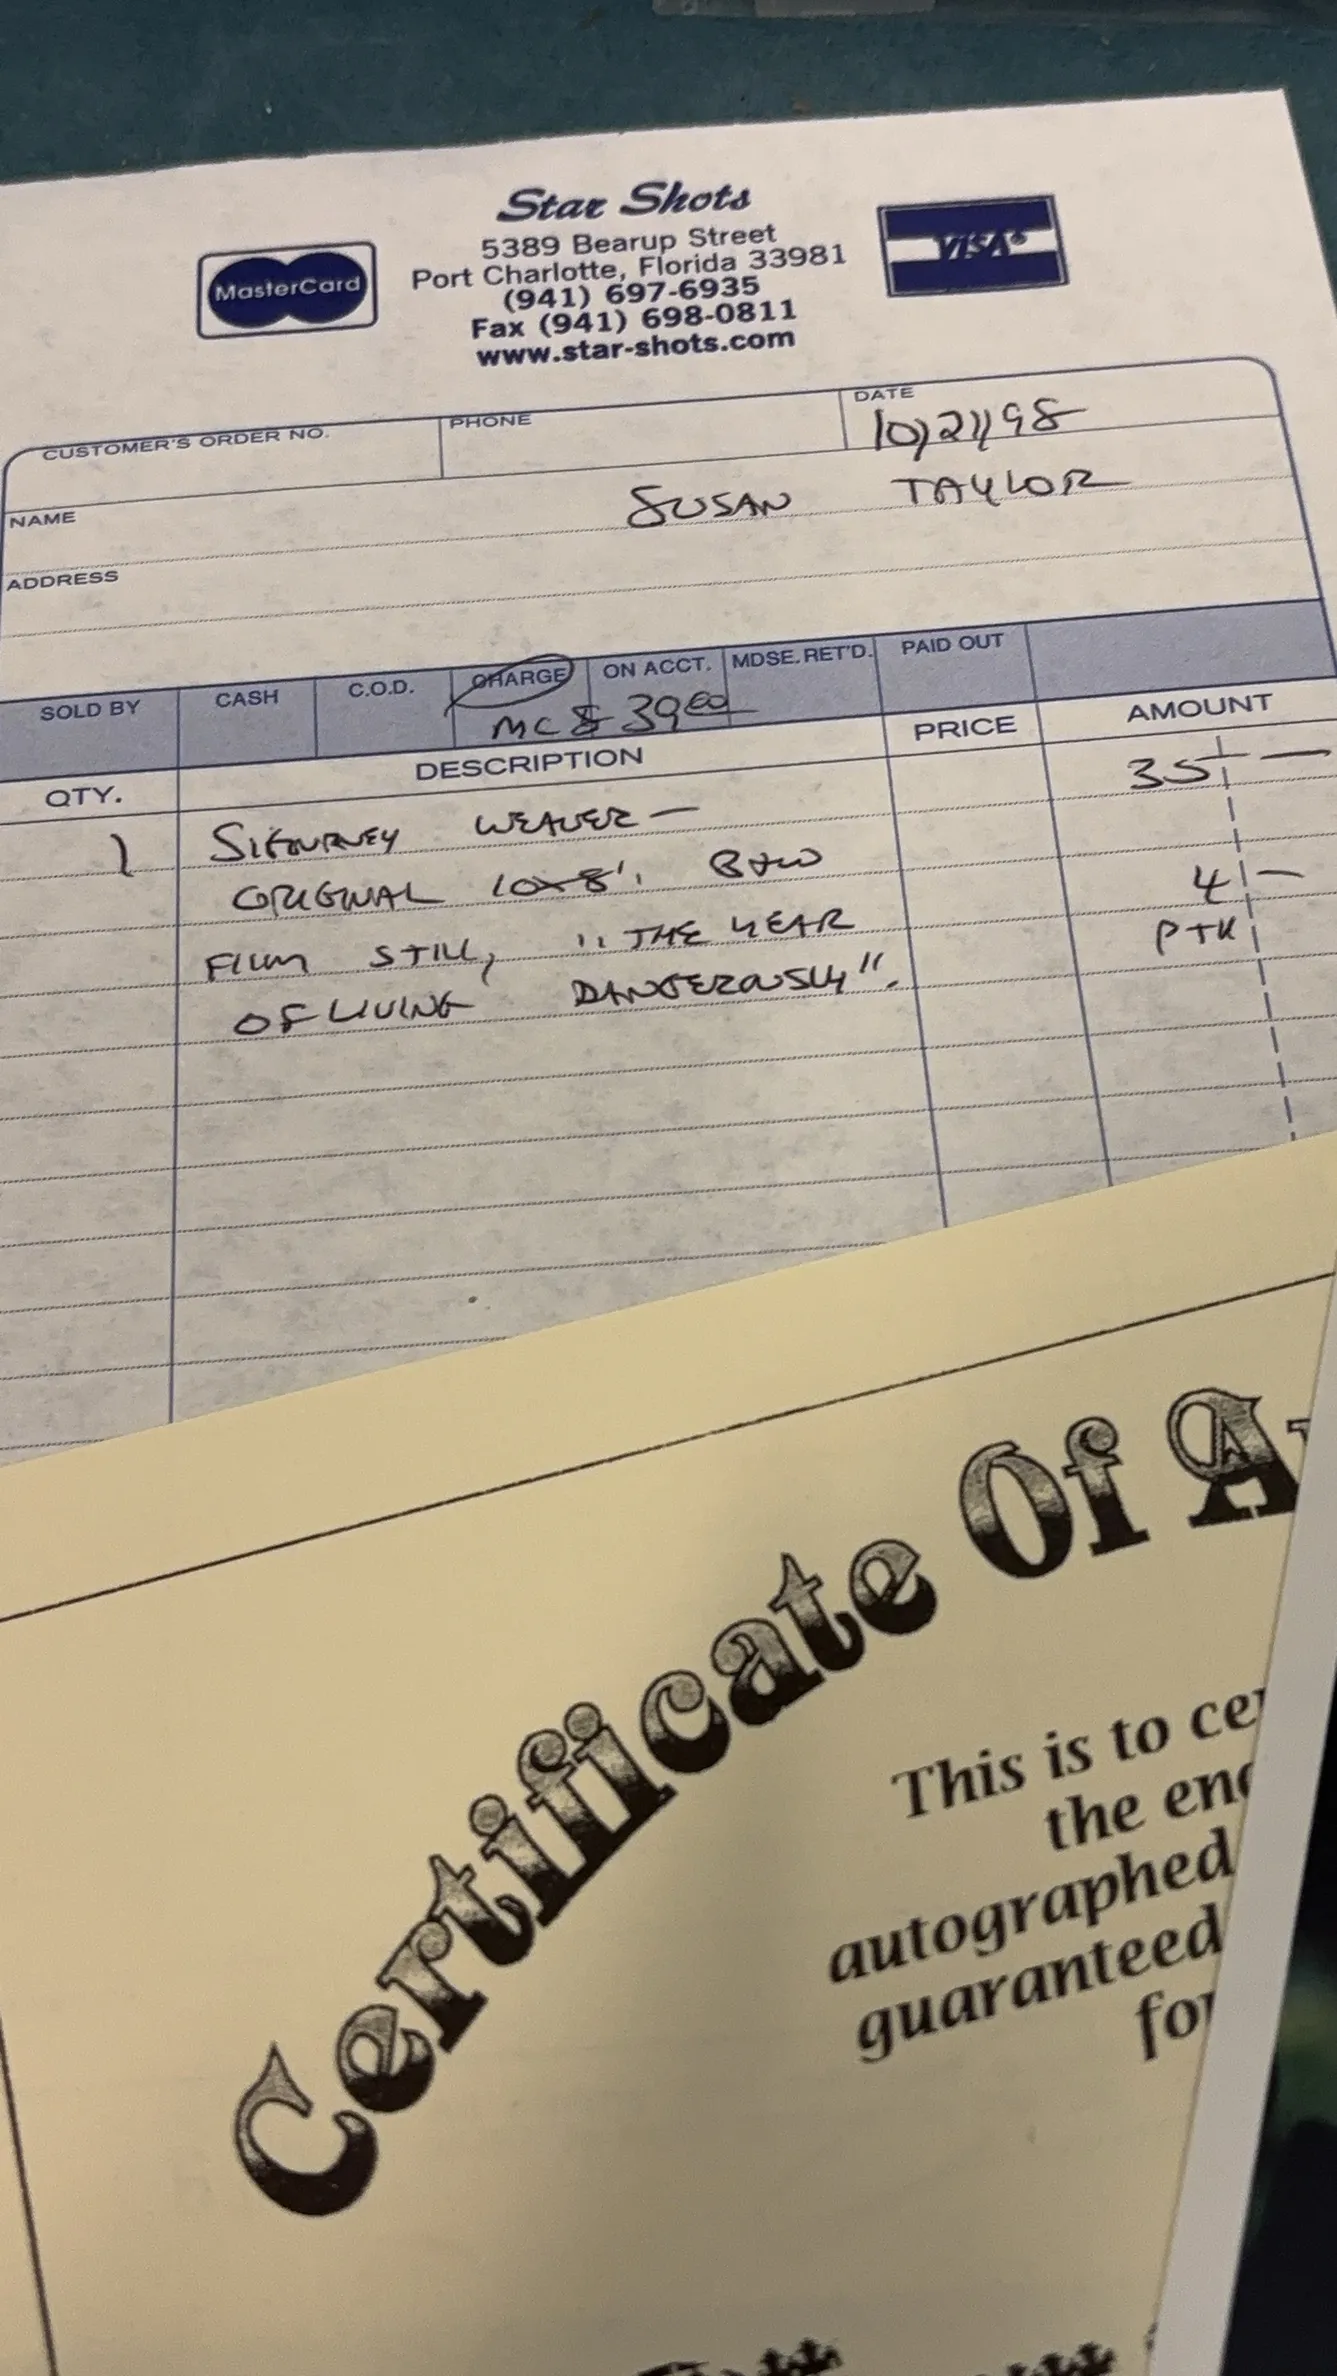 Star Shots
5389 Bearup Street
Port Charlotte, Florida 33981
(941) 697-6935
Fax (941) 698-0811
www.star-shots.com
MasterCard
VISA®
CUSTOMER'S ORDER NO.
PHONE
DATE
10/21/98
NAME
SUSAN TAYLOR
ADDRESS
SOLD BY CASH C.O.D. CHARGE ON ACCT. MDSE. RET'D. PAID OUT
MC $ 39.00
QTY. DESCRIPTION PRICE AMOUNT
1 SIGOURNEY WEAVER — 35 —
ORIGINAL 10x8", B+W 4 —
FILM STILL, "THE YEAR P+H
OF LIVING DANGEROUSLY".
Certificate Of A
This is to cer
the enc
autographed
guaranteed
for